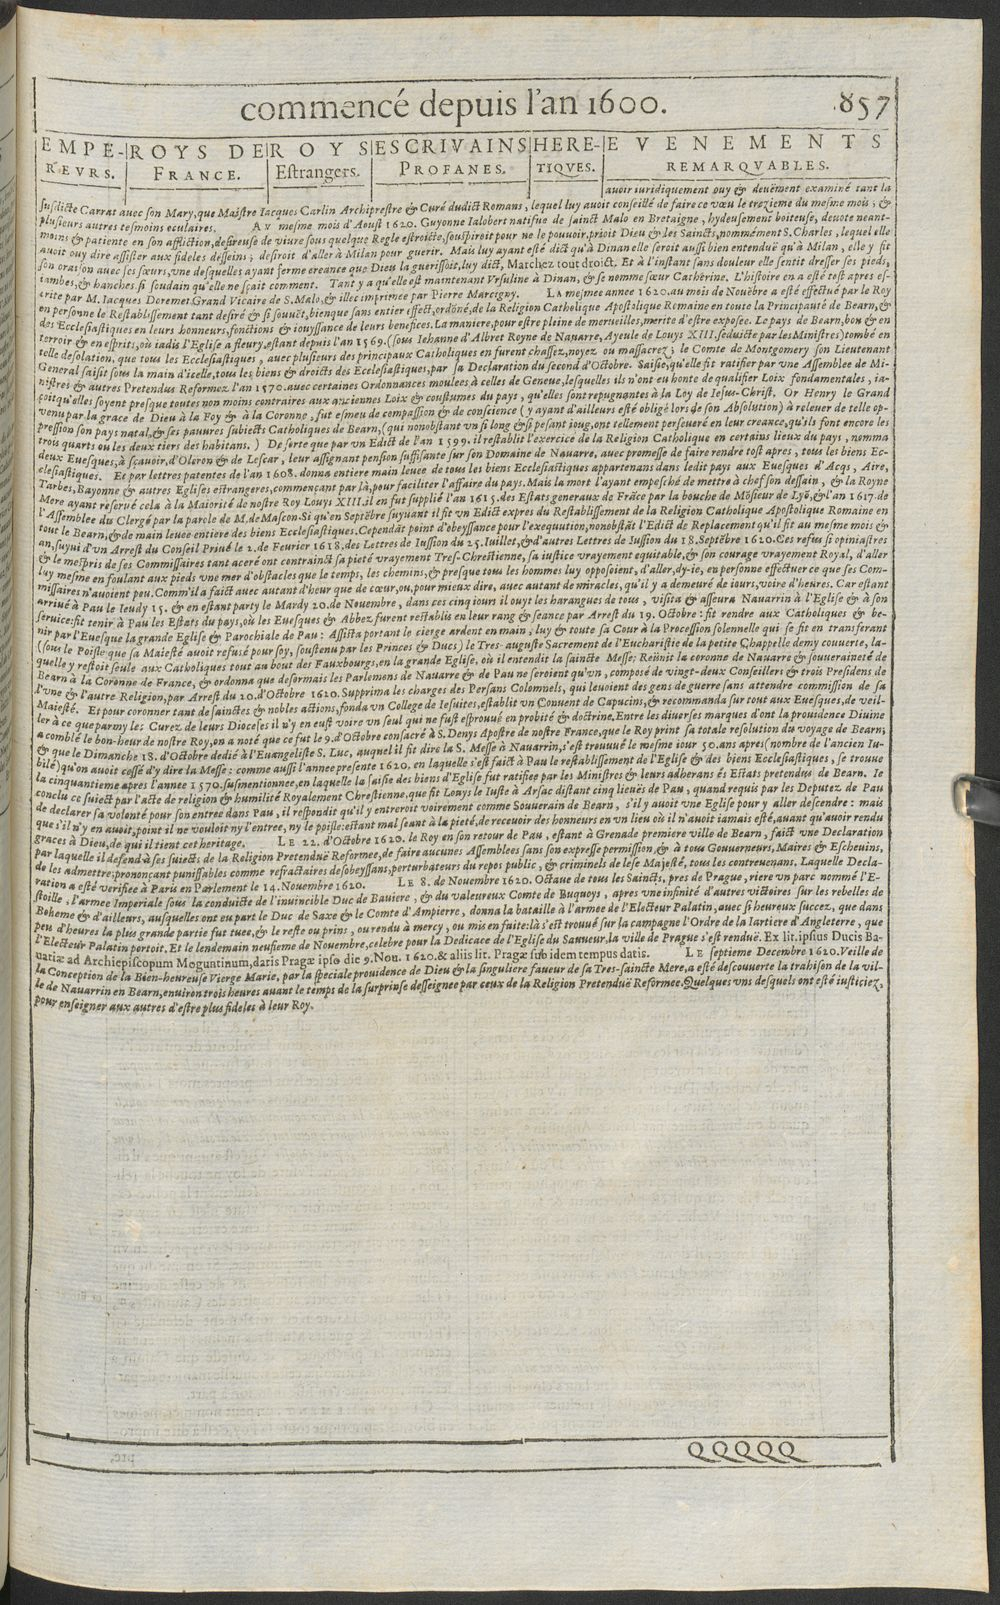 commencé depuis l'an 1600. 857
EMPE-REVRS. ROYS DE FRANCE. ROYS Estrangers. ESCRIVAINS PROFANES. HERE-TIQVES. EVENEMENTS REMARQVABLES.
auoir iuridiquement ouy & deuëment examiné tant la
susdicte Carrat auec son Mary, que Maistre Iacques Carlin Archiprestre & Curé dudict Romans, lequel luy auoit conseillé de faire ce vœu le trezieme du mesme mois; &
plusieurs autres tesmoins oculaires. AV mesme mois d'Aoust 1620. Guyonne Ialobert natifue de sainct Malo en Bretaigne, hydeusement boiteuse, deuote neant-
moins & patiente en son affliction, desireuse de viure sous quelque Regle estroicte, souspiroit pour ne le pouuoir, prioit Dieu & les Saincts, nommément S. Charles, lequel elle
auoit ouy dire assister aux fideles desseins; desiroit d'aller à Milan pour guerir. Mais luy ayant esté dict qu'à Dinan elle seroit aussi bien entenduë qu'à Milan, elle y fit
son oraison auec ses sœurs, vne desquelles ayant ferme creance que Dieu la guerissoit, luy dict, Marchez tout droict. Et à l'instant sans douleur elle sentit dresser ses pieds,
iambes, & hanches, si soudain qu'elle ne sçait comment. Tant y a qu'elle est maintenant Vrsuline à Dinan, & se nomme sœur Catherine. L'histoire en a esté test apres es-
crite par M. Iacques Doremet Grand Vicaire de S. Malo, & illec imprimee par Pierre Marcigny. LA mesme annee 1620. au mois de Nouëbre a esté effectué par le Roy
en personne le Restablissement tant desiré & si souuët, bienque sans entier effect, ordõné, de la Religion Catholique Apostolique Romaine en toute la Principauté de Bearn, &
des Ecclesiastiques en leurs honneurs, fonctions & iouyssance de leurs benefices. La maniere, pour estre pleine de merueilles, merite d'estre exposee. Le pays de Bearn, bon & en
terroir & en esprits, où iadis l'Eglise a fleury, estant depuis l'an 1569. (sous Iehanne d'Albret Royne de Nauarre, Ayeule de Louys XIII. seduicte par les Ministres) tombé en
telle desolation, que tous les Ecclesiastiques, auec plusieurs des principaux Catholiques en furent chassez, noyez ou massacrez; le Comte de Montgomery son Lieutenant
General saisit sous la main d'icelle, tous les biens & droicts des Ecclesiastiques, par sa Declaration du second d'Octobre. Saisie, qu'elle fit ratifier par vne Assemblee de Mi-
nistres & autres Pretendus Reformez l'an 1570. auec certaines Ordonnances moulees à celles de Geneue, lesquelles ils n'ont eu honte de qualifier Loix fondamentales, ia-
çoit qu'elles soyent presque toutes non moins contraires aux anciennes Loix & coustumes du pays, qu'elles sont repugnantes à la Loy de Iesus-Christ. Or Henry le Grand
venu par la grace de Dieu à la Foy & à la Coronne, fut esmeu de compassion & de conscience (y ayant d'ailleurs esté obligé lors de son Absolution) à releuer de telle op-
pression son pays natal, & ses pauures subiects Catholiques de Bearn, (qui nonobstant vn si long & si pesant ioug, ont tellement perseueré en leur creance, qu'ils font encore les
trois quarts ou les deux tiers des habitans.) De sorte que par vn Edict de l'an 1599. il restablit l'exercice de la Religion Catholique en certains lieux du pays, nomma
deux Euesques, à sçauoir, d'Oleron & de Lescar, leur assignant pension suffisante sur son Domaine de Nauarre, auec promesse de faire rendre tost apres, tous les biens Ec-
clesiastiques. Et par lettres patentes de l'an 1608. donna entiere main leuee de tous les biens Ecclesiastiques appartenans dans ledit pays aux Euesques d'Acqs, Aire,
Tarbes, Bayonne & autres Eglises estrangeres, commençant par là, pour faciliter l'affaire du pays. Mais la mort l'ayant empesché de mettre à chef son dessain, & la Royne
Mere ayant reserué cela à la Maiorité de nostre Roy Louys XIII. il en fut supplié l'an 1615. des Estats generaux de Frãce par la bouche de Mõsieur de Lyõ, & l'an 1617. de
l'Assemblee du Clergé par la parole de M. de Mascon. Si qu'en Septëbre suyuant il fit vn Edict expres du Restablissement de la Religion Catholique Apostolique Romaine en
tout le Bearn, & de main leuee entiere des biens Ecclesiastiques. Cependãt point d'obeyssance pour l'exequution, nonobstãt l'Edict de Replacement qu'il fit au mesme mois &
an, suyui d'vn Arrest du Conseil Priué le 2. de Feurier 1618. des Lettres de Iussion du 25. Iuillet, & d'autres Lettres de Iussion du 18. Septëbre 1620. Ces refus si opiniastres
& le mespris de ses Commissaires tant aceré ont contrainct sa pieté vrayement Tres-Chrestienne, sa iustice vrayement equitable, & son courage vrayement Royal, d'aller
luy mesme en foulant aux pieds vne mer d'obstacles que le temps, les chemins, & presque tous les hommes luy opposoient, d'aller, dy-ie, en personne effectuer ce que ses Com-
missaires n'auoient peu. Comm'il a faict auec autant d'heur que de cœur, ou, pour mieux dire, auec autant de miracles, qu'il y a demeuré de iours, voire d'heures. Car estant
arriué à Pau le Ieudy 15. & en estant party le Mardy 20. de Nouembre, dans ces cinq iours il ouyt les harangues de tous, visita & asseura Nauarrin à l'Eglise & à son
seruice: fit tenir à Pau les Estats du pays, où les Euesques & Abbez furent restablis en leur rang & seance par Arrest du 19. Octobre: fit rendre aux Catholiques & be-
nir par l'Euesque la grande Eglise & Parochiale de Pau: Assista portant le cierge ardent en main, luy & toute sa Cour à la Procession solennelle qui se fit en transferant
(sous le Poisle que sa Maiesté auoit refusé pour soy, soustenu par les Princes & Ducs) le Tres-auguste Sacrement de l'Eucharistie de la petite Chappelle demy couuerte, la-
quelle y restoit seule aux Catholiques tout au bout des Fauxbourgs, en la grande Eglise, où il entendit la saincte Messe; Reünit la coronne de Nauarre & souueraineté de
Bearn à la Coronne de France, & ordonna que desormais les Parlemens de Nauarre & de Pau ne seroient qu'vn, composé de vingt-deux Conseillers & trois Presidens de
l'vne & l'autre Religion, par Arrest du 20. d'Octobre 1620. Supprima les charges des Persans Colomnels, qui leuoient des gens de guerre sans attendre commission de sa
Maiesté. Et pour coronner tant de sainctes & nobles actions, fonda vn College de Iesuites, establit vn Conuent de Capucins, & recommanda sur tout aux Euesques, de veil-
ler à ce que parmy les Curez de leurs Dioceses il n'y en eust voire vn seul qui ne fust esprouué en probité & doctrine. Entre les diuerses marques d'ont la prouidence Diuine
a comblé le bon-heur de nostre Roy, on a noté que ce fut le 9. d'Octobre consacré à S. Denys Apostre de nostre France, que le Roy print sa totale resolution du voyage de Bearn;
& que le Dimanche 18. d'Octobre dedié à l'Euangeliste S. Luc, auquel il fit dire la S. Messe à Nauarrin, s'est trouuué le mesme iour 50. ans apres (nombre de l'ancien Iu-
bilé) qu'on auoit cessé d'y dire la Messe: comme aussi l'annee presente 1620. en laquelle s'est faict à Pau le restablissement de l'Eglise & des biens Ecclesiastiques, se trouue
la cinquantieme apres l'annee 1570. susmentionnee, en laquelle la saisie des biens d'Eglise fut ratifiee par les Ministres & leurs adherans és Estats pretendus de Bearn. Ie
conclu ce suiect par l'acte de religion & humilité Royalement Chrestienne, que fit Louys le Iuste à Arsac distant cinq lieuës de Pau, quand requis par les Deputez de Pau
de declarer sa volonté pour son entree dans Pau, il respondit qu'il y entreroit voirement comme Souuerain de Bearn, s'il y auoit vne Eglise pour y aller descendre: mais
que s'il n'y en auoit, point il ne vouloit ny l'entree, ny le poisle: estant mal seant à la pieté, de receuoir des honneurs en vn lieu où il n'auoit iamais esté, auant qu'auoir rendu
graces à Dieu, de qui il tient cet heritage. LE 22. d'Octobre 1620. le Roy en son retour de Pau, estant à Grenade premiere ville de Bearn, faict vne Declaration
par laquelle il defend à ses suiects de la Religion Pretenduë Reformee, de faire aucunes Assemblees sans son expresse permission, & à tous Gouuerneurs, Maires & Escheuins,
de les admettre; prononçant punissables comme refractaires desobeyssans, perturbateurs du repos public, & criminels de lese Majesté, tous les contreuenans. Laquelle Decla-
ration a esté verifiee à Paris en Parlement le 14. Nouembre 1620. LE 8. de Nouembre 1620. Octaue de tous les Saincts, pres de Prague, riere vn parc nommé l'E-
stoille, l'armee Imperiale sous la conduicte de l'inuincible Duc de Bauiere, & du valeureux Comte de Buquoys, apres vne infinité d'autres victoires sur les rebelles de
Boheme & d'ailleurs, ausquelles ont eu part le Duc de Saxe & le Comte d'Ampierre, donna la bataille à l'armee de l'Electeur Palatin, auec si heureux succez, que dans
peu d'heures la plus grande partie fut tuee, & le reste ou prins, ou rendu à mercy, ou mis en fuite: là s'est trouué sur la campagne l'Ordre de la Iartiere d'Angleterre, que
l'Electeur Palatin portoit. Et le lendemain neufieme de Nouembre, celebre pour la Dedicace de l'Eglise du Sauueur, la ville de Prague s'est renduë. Ex lit. ipsius Ducis Ba-
uariæ ad Archiepiscopum Moguntinum, datis Pragæ ipso die 9. Nou. 1620. & aliis lit. Pragæ sub idem tempus datis. LE septieme Decembre 1620. Veille de
la Conception de la Bien-heureuse Vierge Marie, par la speciale prouidence de Dieu & la singuliere faueur de sa Tres-saincte Mere, a esté descouuerte la trahison de la vil-
le de Nauarrin en Bearn, enuiron trois heures auant le temps de la surprinse desseignee par ceux de la Religion Pretenduë Reformee. Quelques vns desquels ont esté iusticiez,
pour enseigner aux autres d'estre plus fideles à leur Roy.
QQQQQ